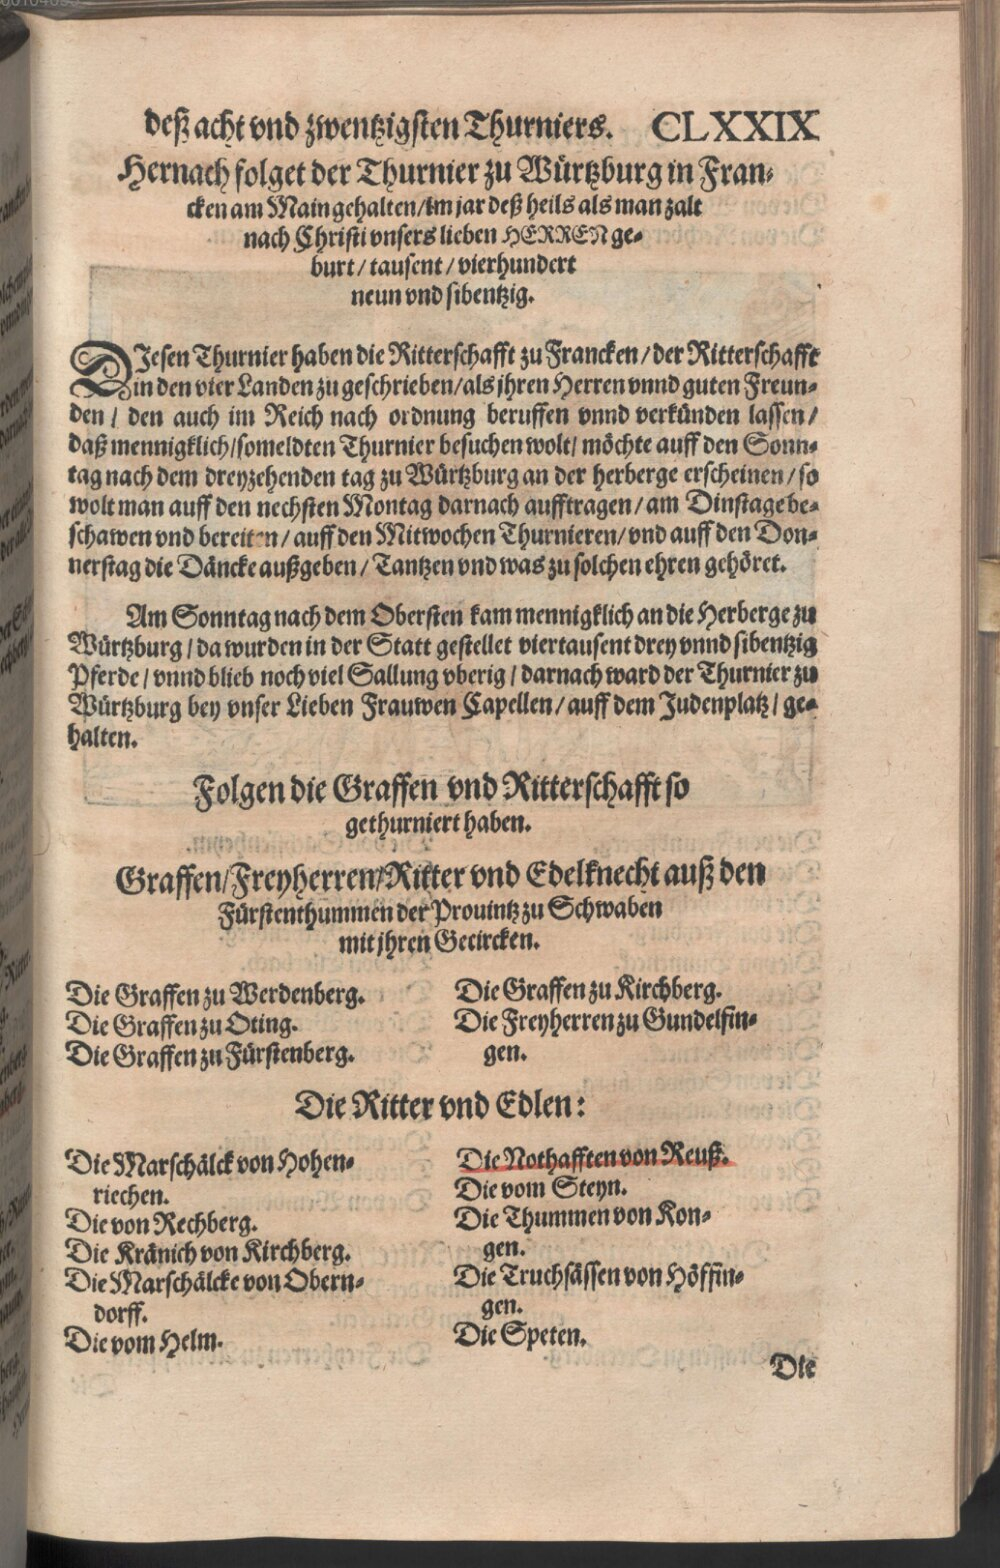 deß acht vnd zwentzigsten Thurniers. CLXXIX
Hernach folget der Thurnier zu Würtzburg in Fran-
cken am Main gehalten/im jar deß heils als man zalt
nach Christi vnsers lieben HERREN ge-
burt/tausent/vierhundert
neun vnd sibentzig.
DIesen Thurnier haben die Ritterschafft zu Francken/der Ritterschafft
in den vier Landen zu geschrieben/als jhren Herren vnnd guten Freun-
den/ den auch im Reich nach ordnung beruffen vnnd verkünden lassen/
daß mennigklich/so meldten Thurnier besuchen wolt/ möchte auff den Sonn-
tag nach dem dreyzehenden tag zu Würtzburg an der herberge erscheinen/so
wolt man auff den nechsten Montag darnach aufftragen/am Dinstage be-
schawen vnd bereiten/auff den Mitwochen Thurnieren/vnd auff den Don-
nerstag die Däncke außgeben/Tantzen vnd was zu solchen ehren gehöret.
Am Sonntag nach dem Obersten kam mennigklich an die Herberge zu
Würtzburg/da wurden in der Statt gestellet viertausent drey vnnd sibentzig
Pferde/vnnd blieb noch viel Sallung vberig/darnach ward der Thurnier zu
Würtzburg bey vnser Lieben Frauwen Capellen/auff dem Judenplatz/ ge-
halten.
Folgen die Graffen vnd Ritterschafft so
gethurniert haben.
Graffen/Freyherren/Ritter vnd Edelknecht auß den
Fürstenthummen der Prouintz zu Schwaben
mit jhren Gecircken.
Die Graffen zu Werdenberg.
Die Graffen zu Oting.
Die Graffen zu Fürstenberg.
Die Graffen zu Kirchberg.
Die Freyherren zu Gundelfin-
gen.
Die Ritter vnd Edlen:
Die Marschälck von Hohen-
riechen.
Die von Rechberg.
Die Kränich von Kirchberg.
Die Marschälcke von Obern-
dorff.
Die vom Helm.
Die Nothafften von Reuß.
Die vom Steyn.
Die Thummen von Kon-
gen.
Die Truchsässen von Höffin-
gen.
Die Speten.
Die